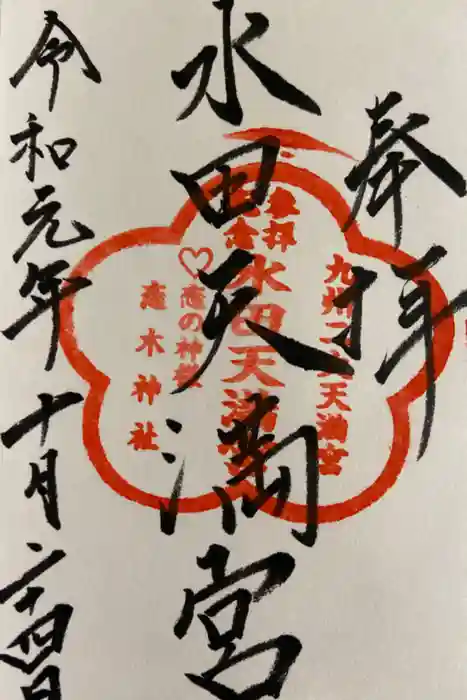 奉拝
水田天満宮
令和元年十月二十四日
参拝
記念
九州二大天満宮
水田天満宮
恋の神様
恋木神社